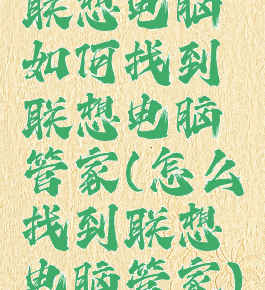 联想电脑
如何找到
联想电脑
管家(怎么
找到联想
电脑管家)